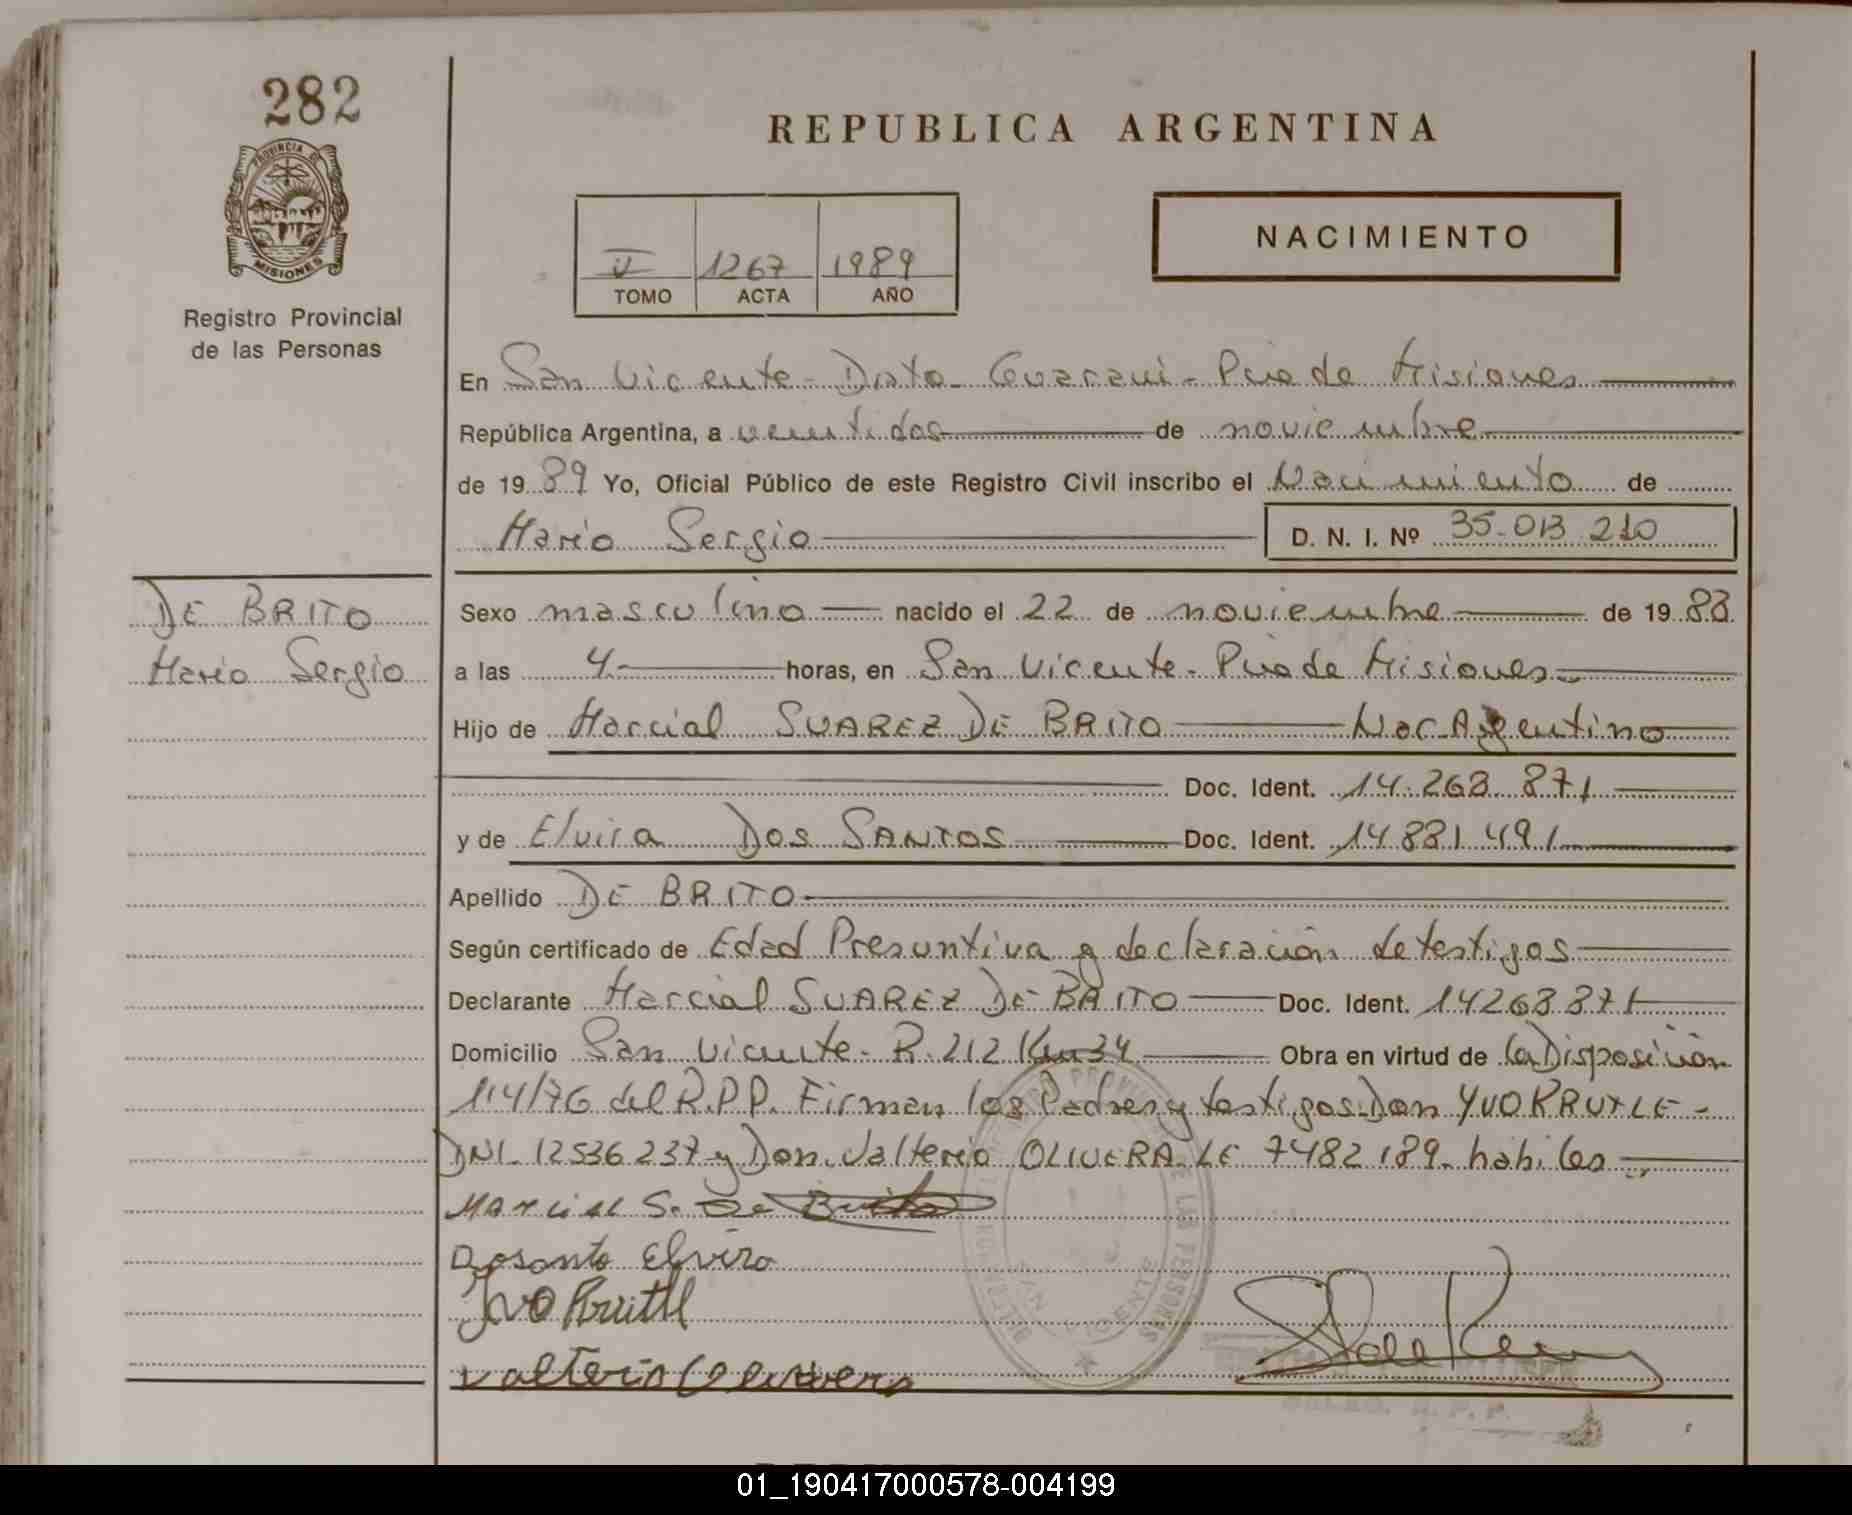 282
PROVINCIA DE
MISIONES
Registro Provincial
de las Personas
REPUBLICA ARGENTINA
1267 1989
TOMO ACTA AÑO
NACIMIENTO
En San Vicente - Dpto Guarani - Pcia de Misiones
República Argentina, a veintidos de noviembre
de 1989 Yo, Oficial Público de este Registro Civil inscribo el Nacimiento de
Mario Sergio D. N. I. Nº 35.013 210
DE BRITO
Mario Sergio
Sexo masculino nacido el 22 de noviembre de 1988
a las 4.- horas, en San Vicente - Pcia de Misiones
Hijo de Marcial SUAREZ DE BRITO Nac Argentino
Doc. Ident. 14.268 871
y de Elvira DOS SANTOS Doc. Ident. 14 881 491
Apellido DE BRITO
Según certificado de Edad Presuntiva y declaración de testigos
Declarante Marcial SUAREZ DE BRITO Doc. Ident. 14268871
Domicilio San Vicente - R. 212 Km 34 Obra en virtud de la Disposición
114/76 del R.P.P. Firman los Padres y testigos Don YVO KRUTLE -
DNI 12536 237 y Don Valterio OLIVERA LE 7482 189 - habiles
Marcial S. De Brito
Dosanto Elvira
Ivo
Valterio Olivera
SAN VICENTE
DE LAS PERSONAS
01_190417000578-004199